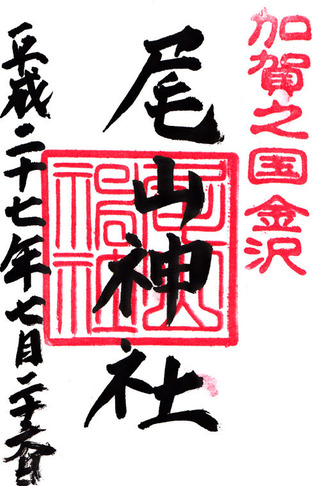 加賀之国金沢
尾山神社
平成二十七年七月二十六日